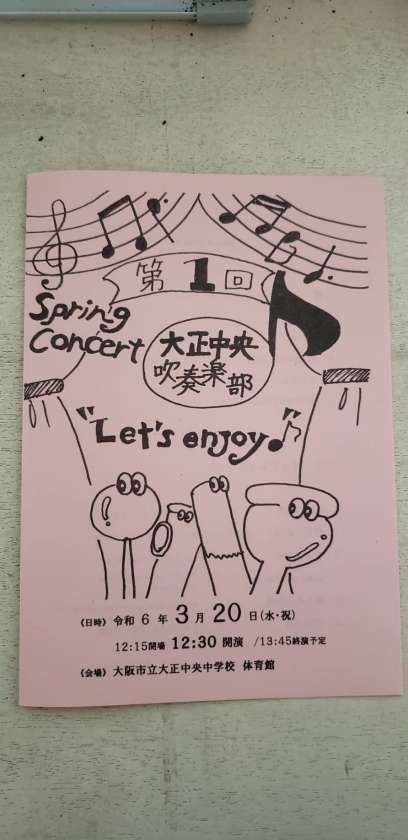 第1回
Spring
Concert
大正中央
吹奏楽部
"Let's enjoy♪"
《日時》 令和 6 年 3 月 20 日(水・祝)
12:15開場 12:30 開演 /13:45終演予定
《会場》 大阪市立大正中央中学校 体育館